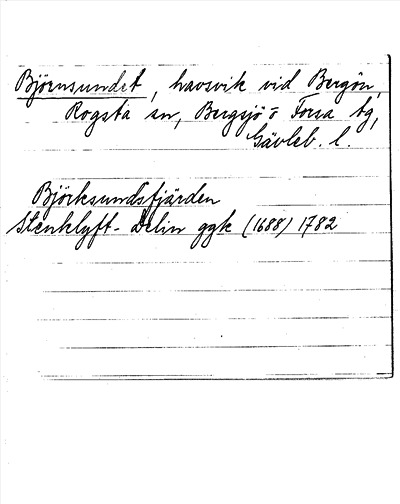 Björnsundet, havsvik vid Bergön,
Rogsta sn, Bergsjö o Forsa tg,
Gävleb. l.
Björksundsfjärden
Stenklyft-Delin ggk (1688) 1782